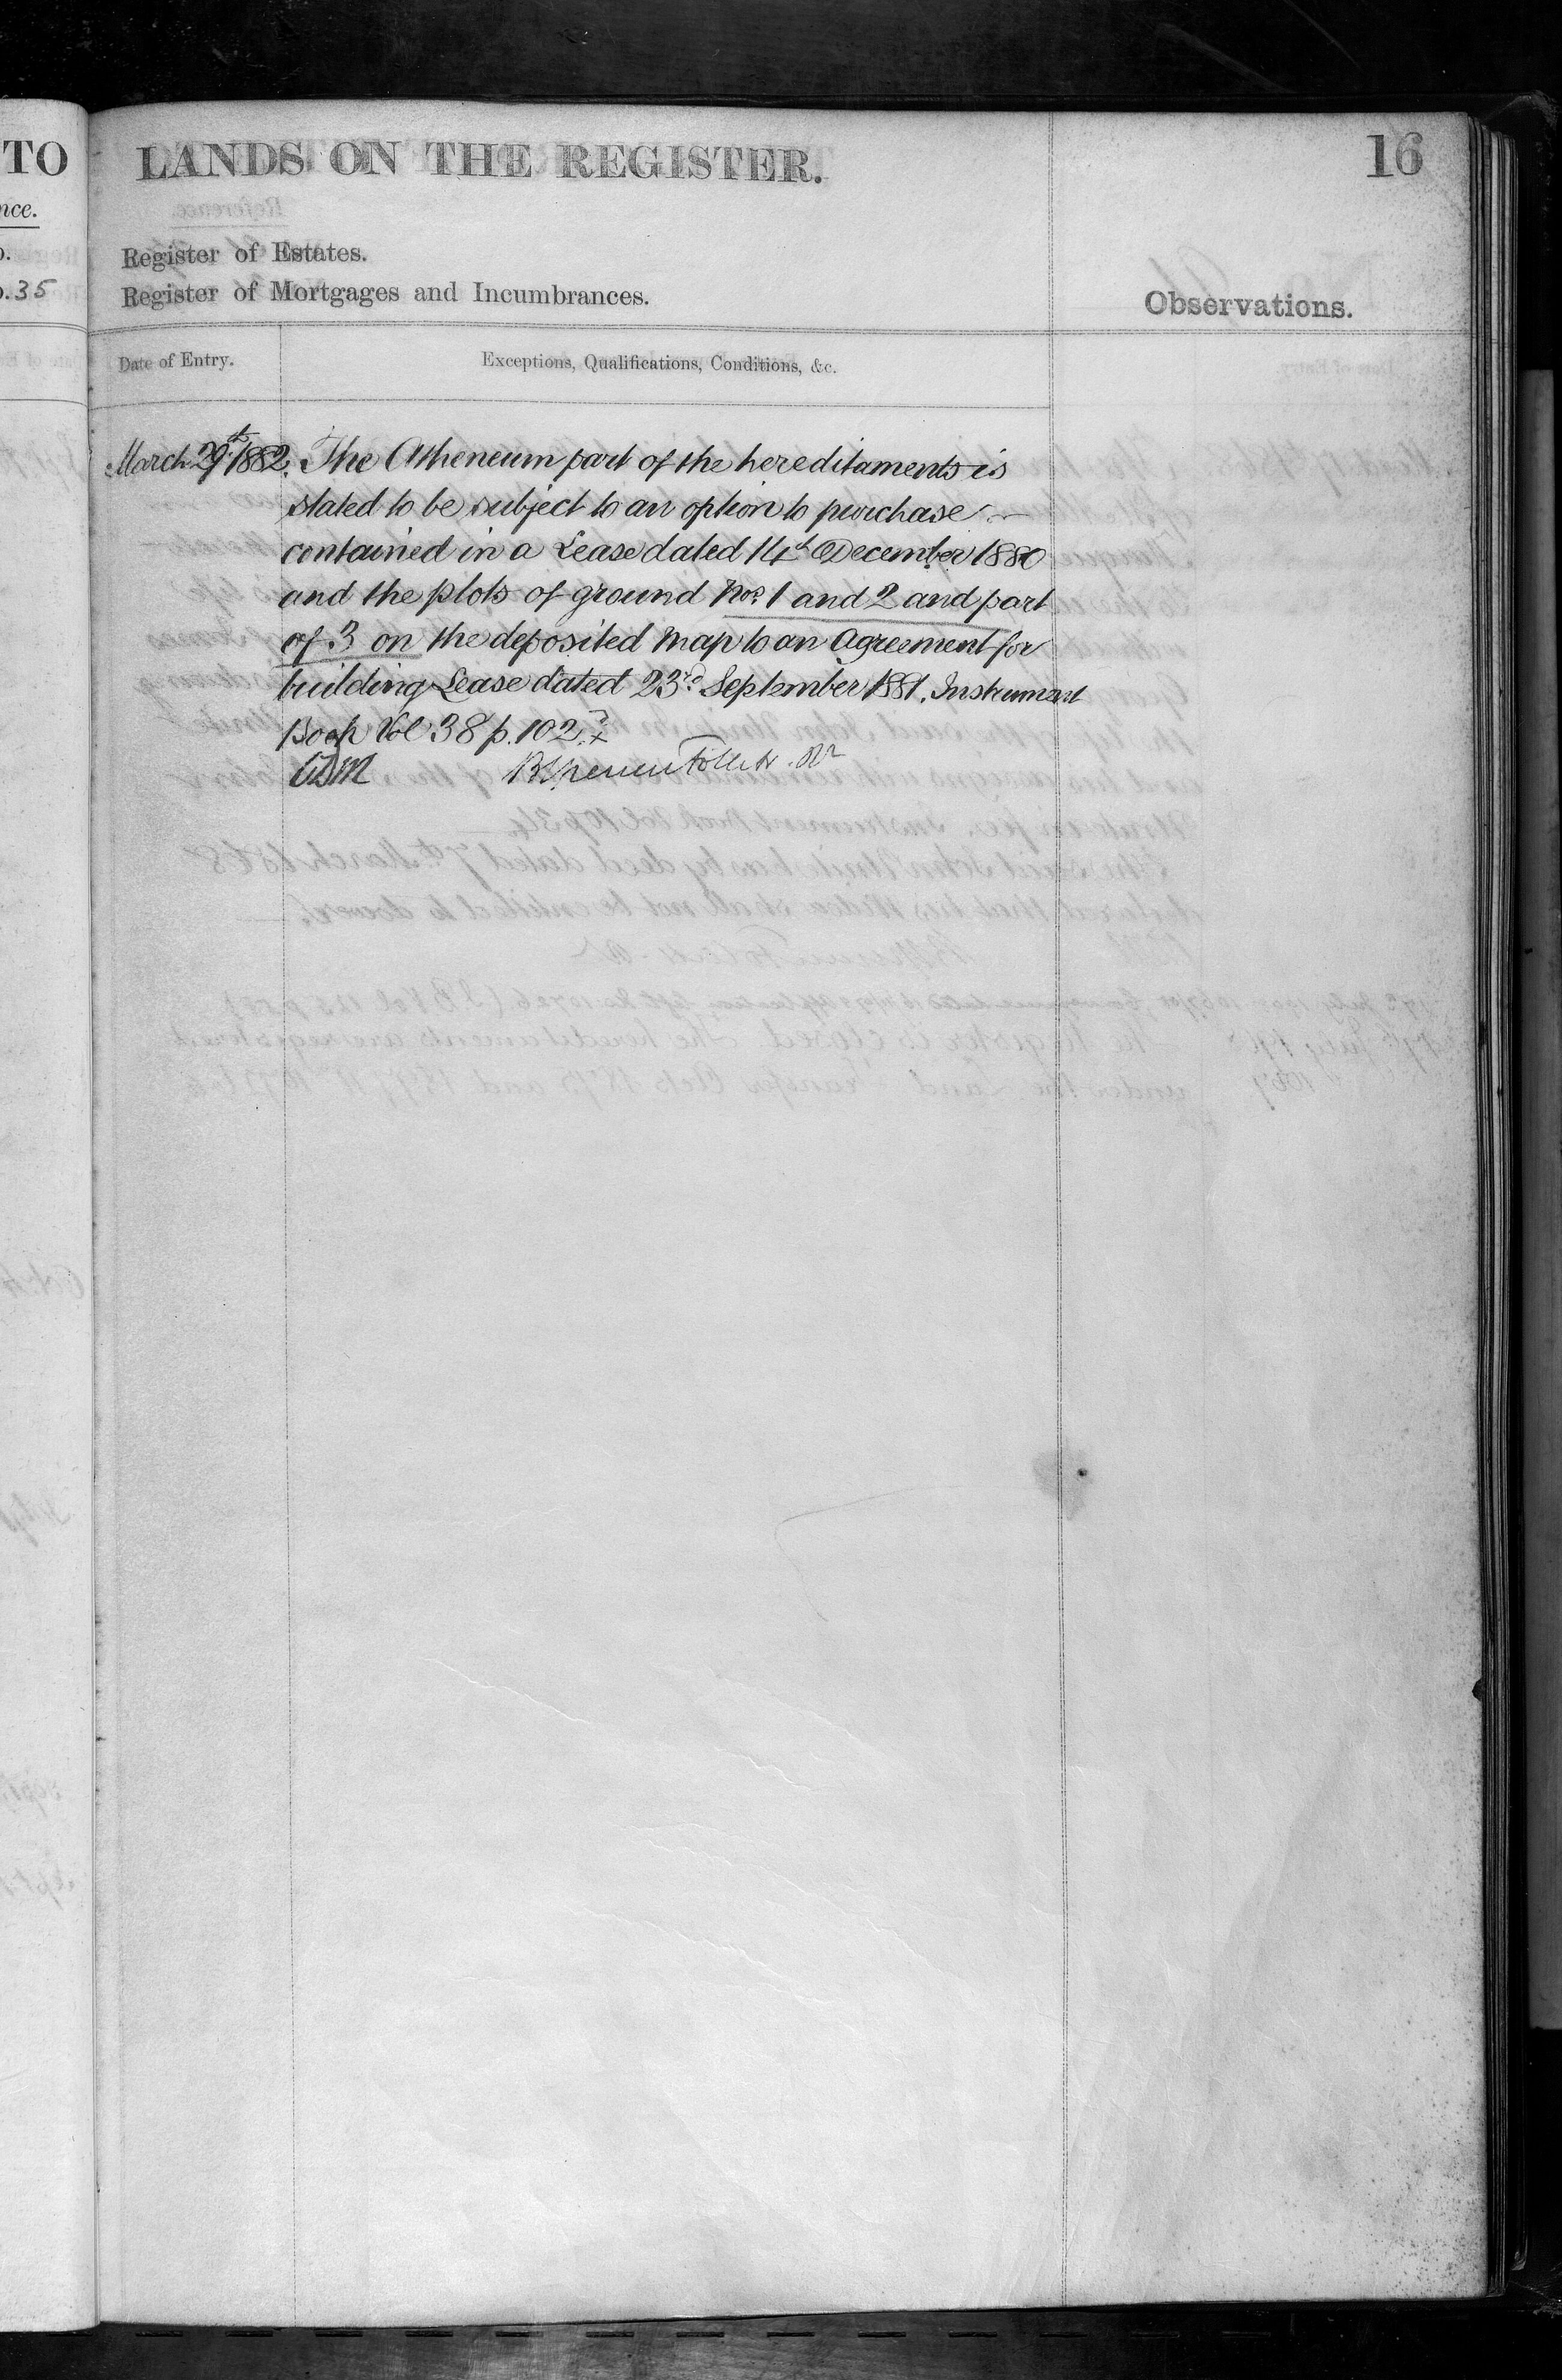 TO
nce.
o.
o. 35
LANDS ON THE REGISTER.
16
Register of Estates.
Register of Mortgages and Incumbrances.
Observations.
Date of Entry.
Exceptions, Qualifications, Conditions, &c.
March 29th 1882. The Atheneum part of the hereditaments is
stated to be subject to an option to purchase
contained in a Lease dated 14th December 1880
and the plots of ground Nos. 1 and 2 and part
of 3 on the deposited Map to an Agreement for
building Lease dated 23rd September 1881. Instrument
Book Vol 38 p. 102